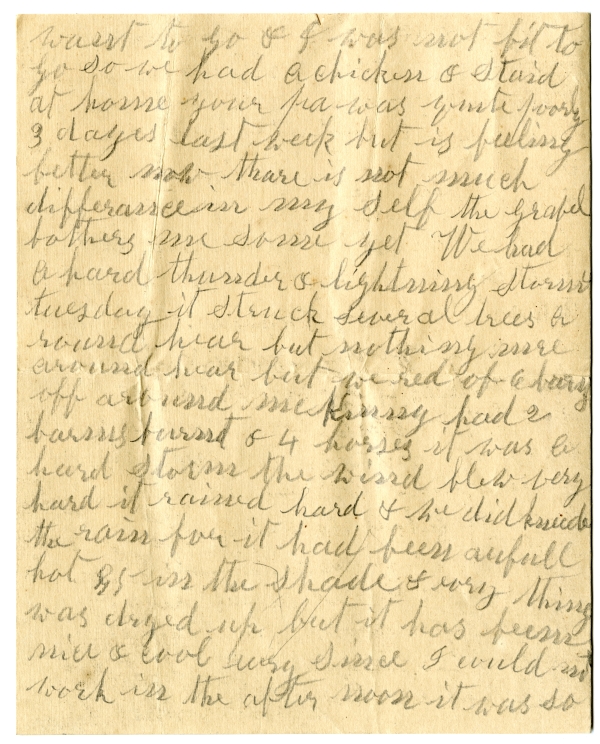 want to go & I was not fit to
go so we had a chicken & staid
at home your pa was quite poorly
3 dayes last week but is feeling
better now thare is not much
differance in my self the grapel
bothers me some yet We had
a hard thunder & lightning storm
tuesday it struck several trees a
round hear but nothing nire
around hear but we red of a
off around mc Kinny had 2
barns burnt & 4 horses it was a
hard storm the wind blew very
hard it rained hard & we did kneede
the rain for it had been aufull
hot 95 in the shade & evry thing
was dryed up but it has been
nice & cool evry since I could not
work in the after noon it was so